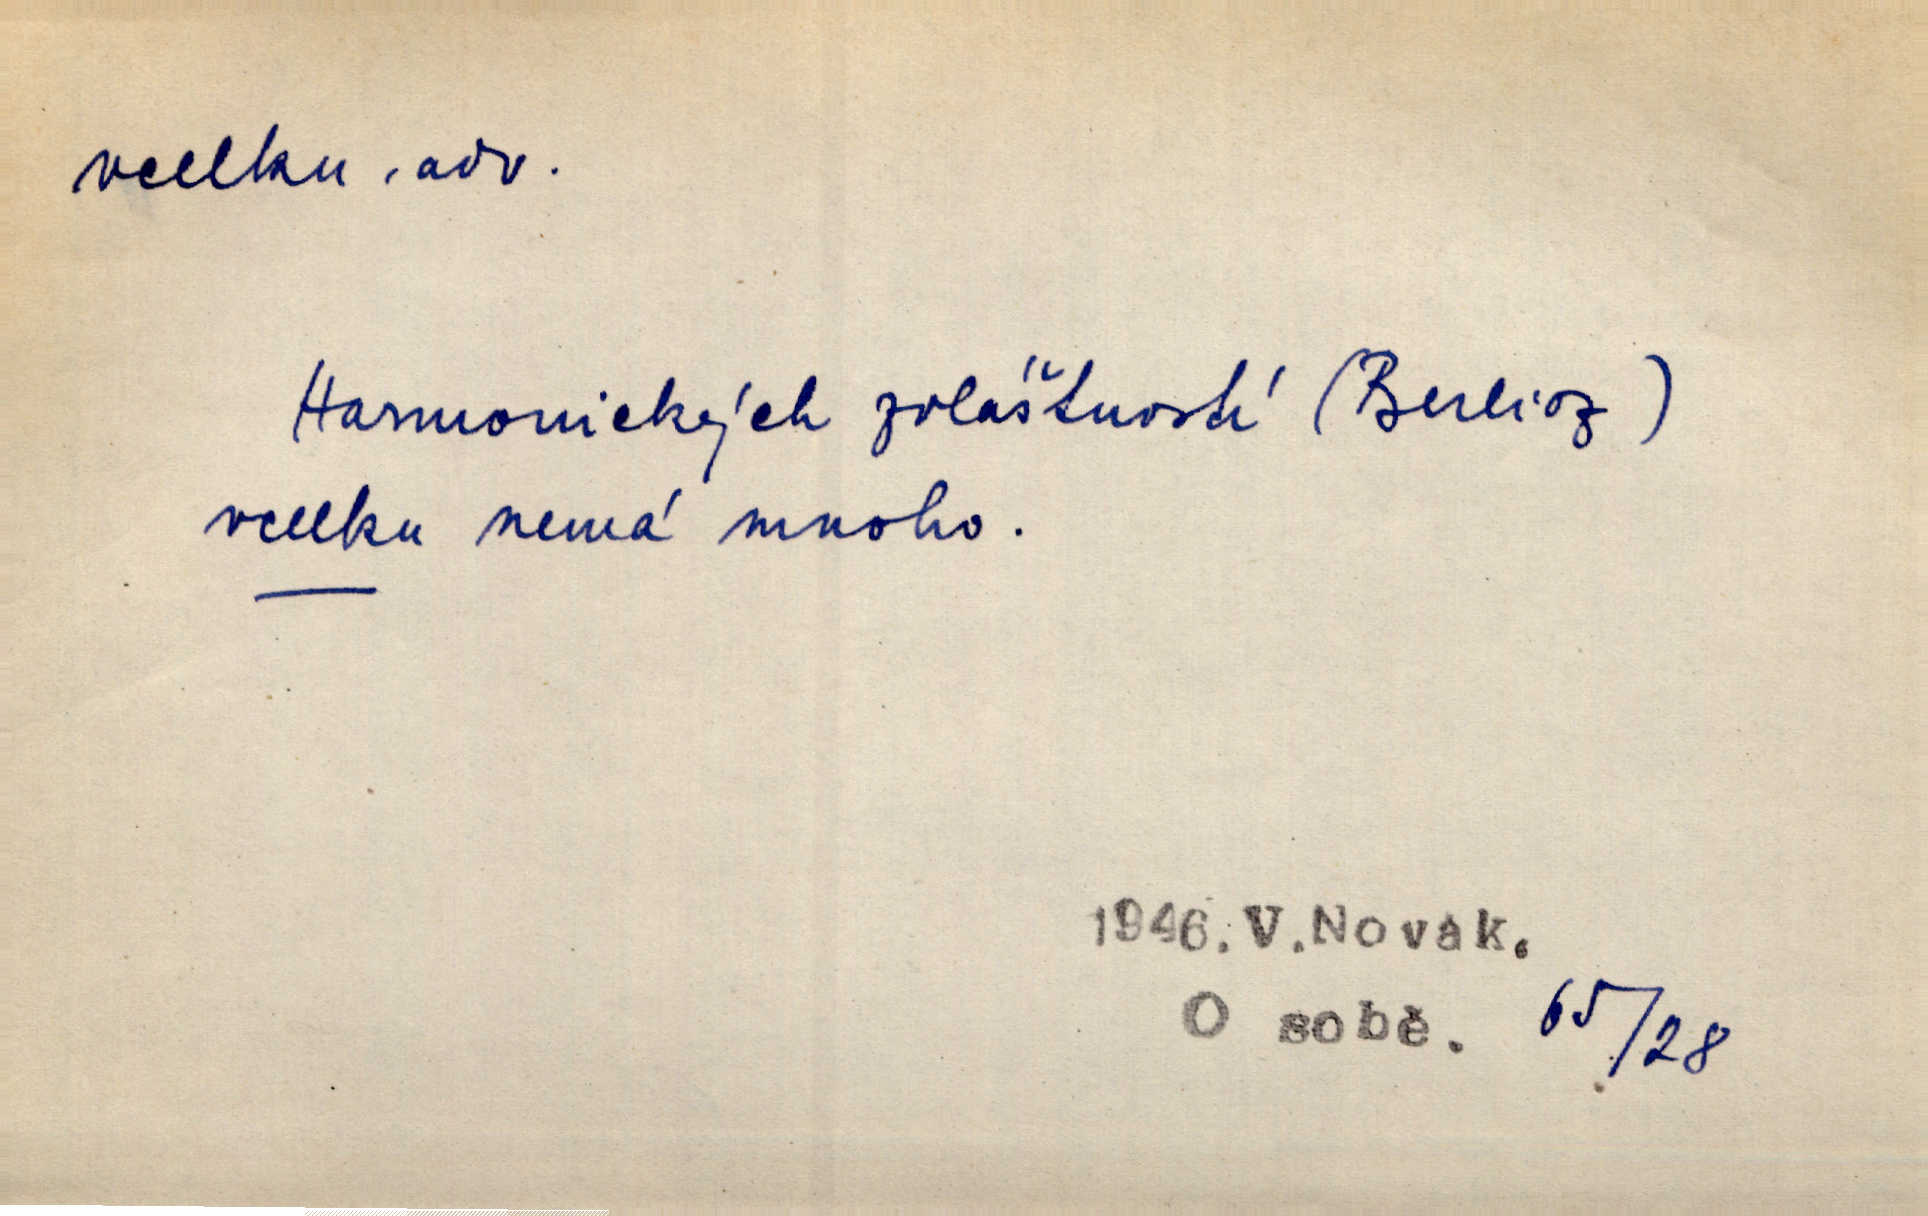 vcelku, adv.
Harmonických zvláštností (Berlioz)
vcelku nemá mnoho.
1946. V. Novák.
O sobě. 65/28